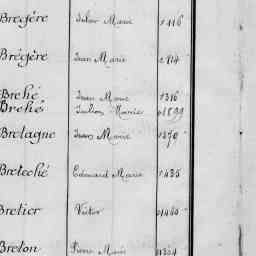 Bregère Julien Marie 1416
Brégère Jean Marie 1914
Brehé Jean Marie 1316
Brehé Julien Marie 01899
Bretagne Jean Marie 1370
Breteché Edouard Marie 1435
Bretier Victor 01460
Breton Pierre Marie